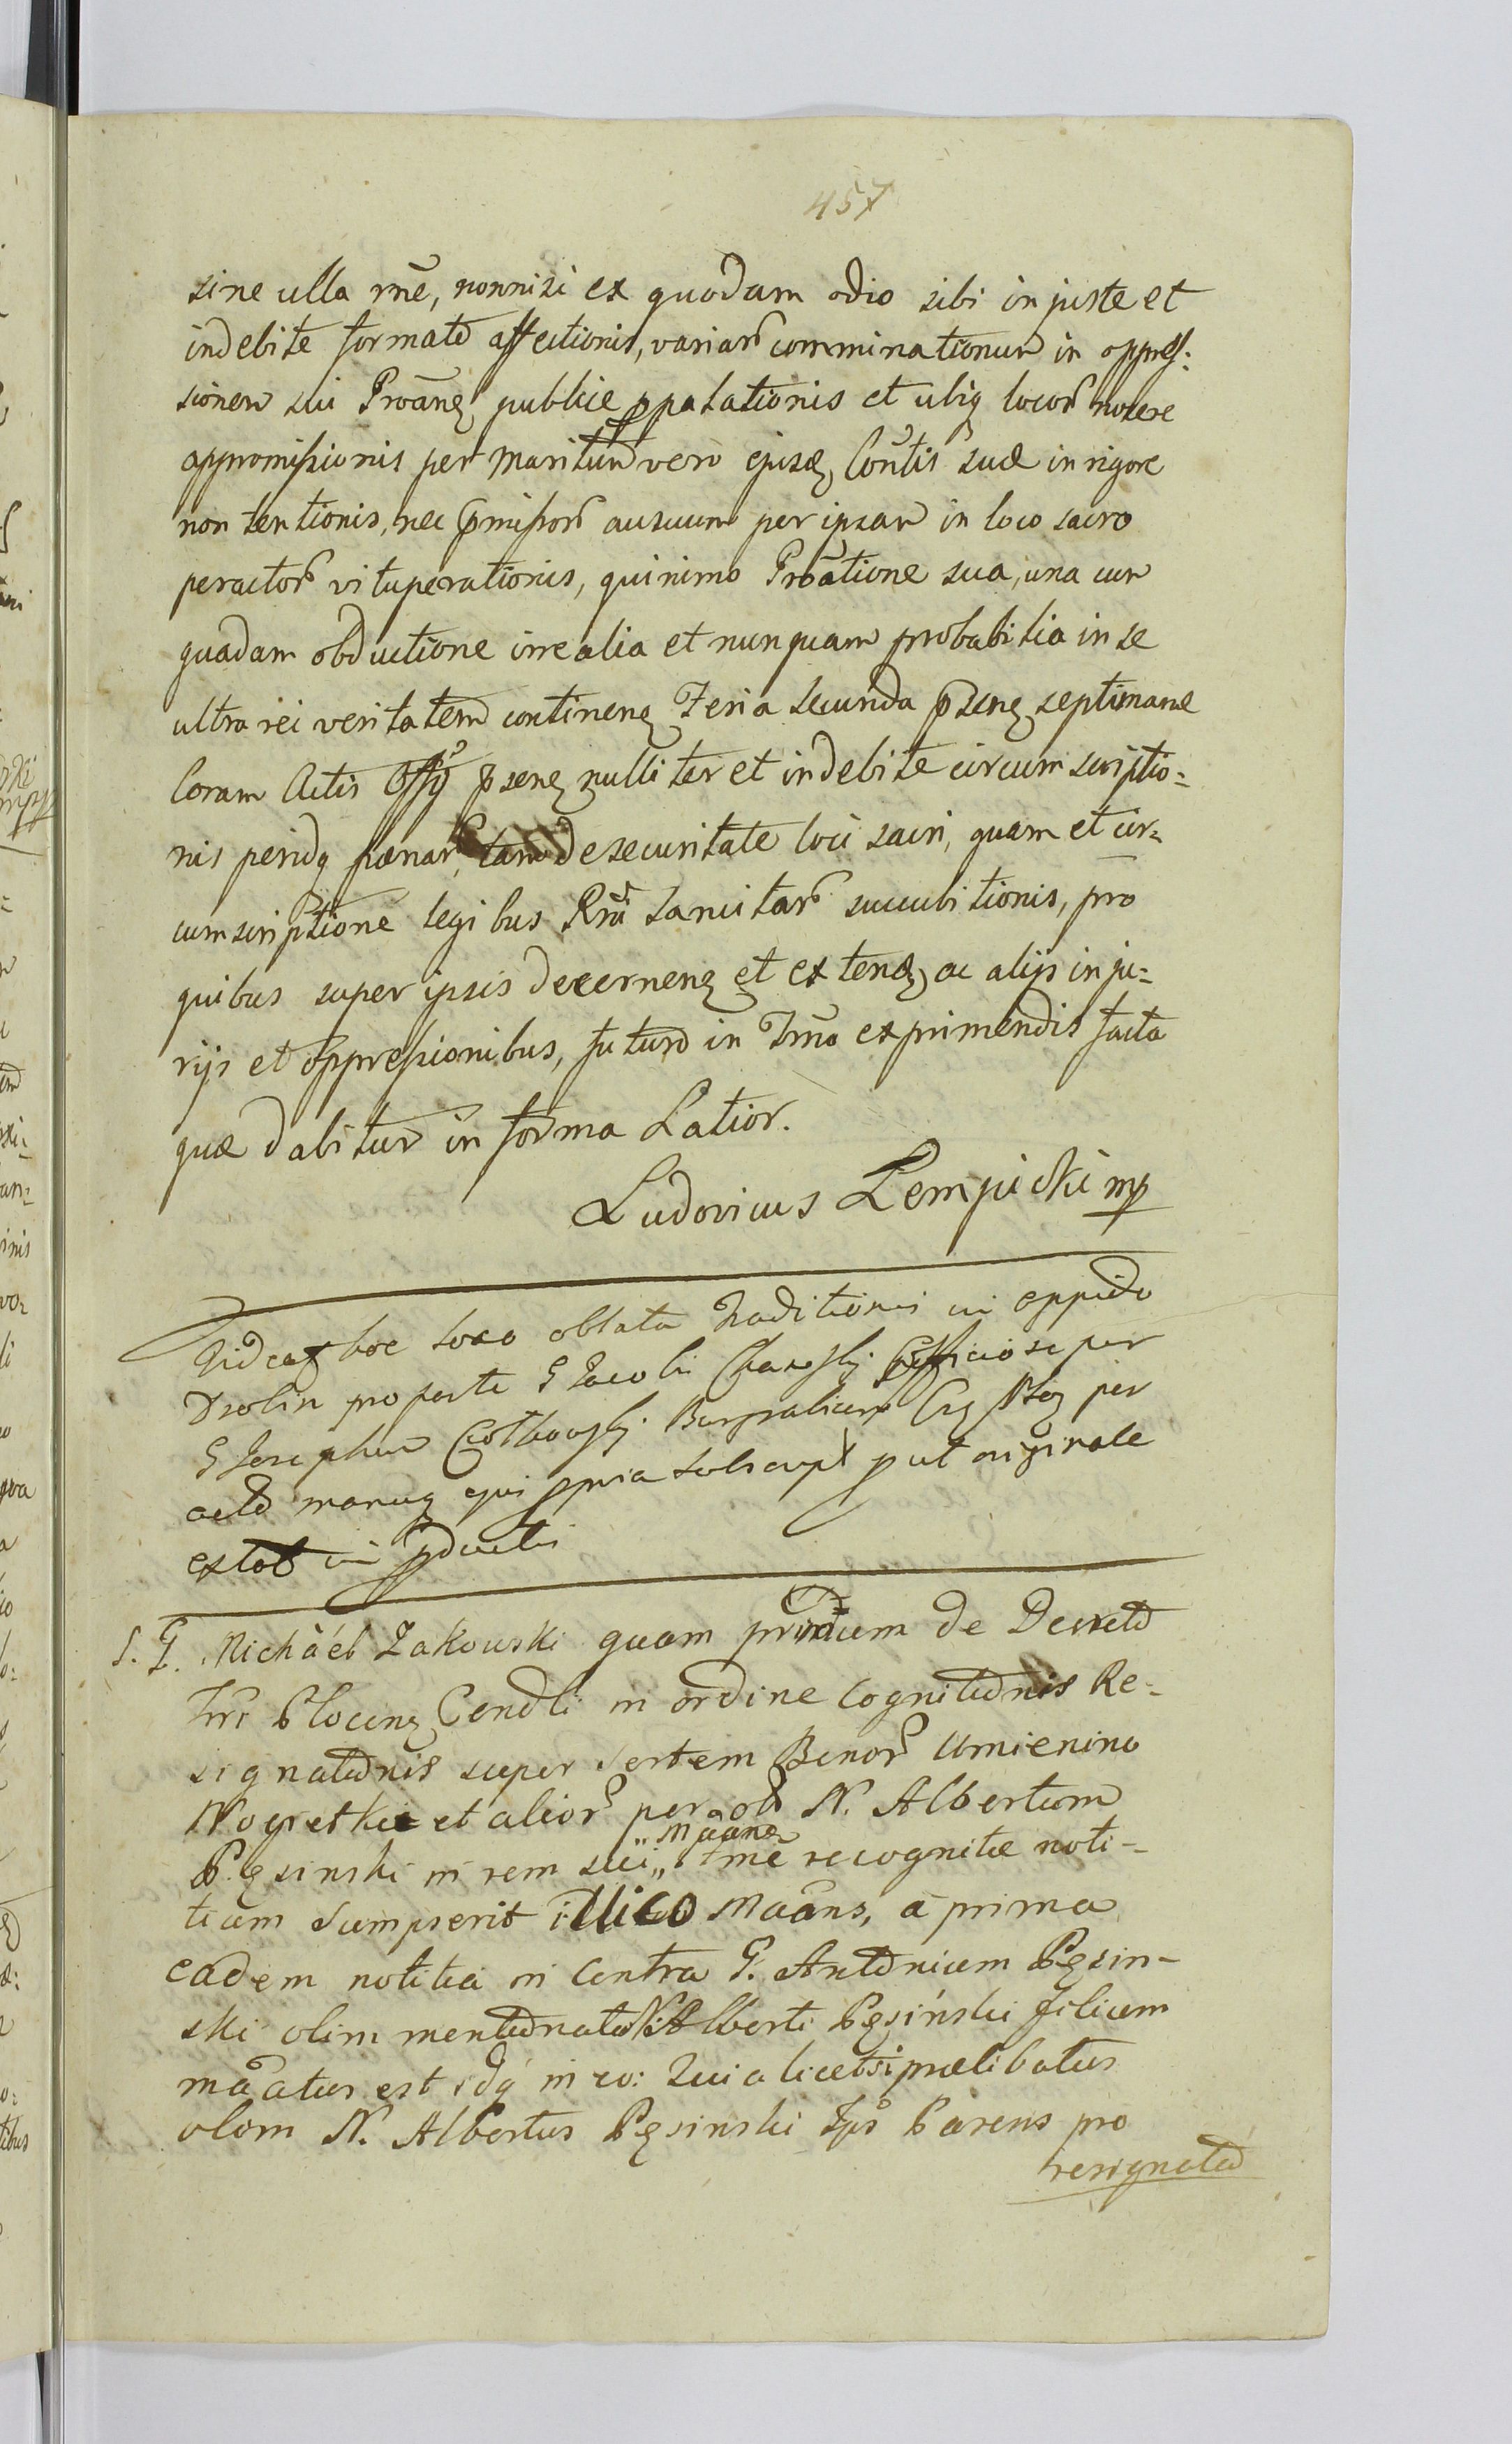 457
sine ulla rñe, nonnisi ex quodam odio sibi injuste et
indebite formato affectionis, variar comminationum in oppres:
sionem sui Proãnꝫ publice ppalationis et ubiq locor nocere
appromissionis per Maritum vero ejusꝫ Contis suæ in rigore
non tentionis, nec pmissor ausuum per ipsam in loco sacro
peractor vituperationis, quinimo Proãtione sua, una cum
quadam obductione irrealia et nunquam probabilia in se
ultra rei veritatem continenꝫ Feria secunda psenꝫ septimanæ
Coram Actis Offij psenꝫ nulliter et indebite circumscriptio=
nis peridq pœnar, tam de securitate loci sacri, quam et cir=
cumscriptione legibus Rni sancitar succubitionis, pro
quibus super ipsis decernenꝫ et extendꝫ ac alijs inju=
rijs et oppressionibus, futuro in Tmõ exprimendis facta
quæ dabitur in forma Latior.
Ludovicus Lempicki mp
hoc loco oblata Traditionis in oppido
Drobin pro parte G Jacobi officiose per
G Josephum Burgrabium per
acto manuq ejus ppria subscript put originale
extat in pductis
S. G. Michaël Zakowski quam primum de Decreto
Tri Plocenꝫ Gendli in ordine Cognitionis Re-
signationis super sortem Bonor Umienino
Nogretki et alior per olim N. Albertum
Pęsinski in rem sui Mãanꝫ me recognitæ noti-
tiam sumpserit illico Maãns, a prima
eadem notitia in Contra G. Antonium Pęsin-
ski olim mentionati N Alberti Pęsiński filium
mãatus est idq in eo: Quia licet si prælibatus
olim N. Albertus Pęsinski Ips Parens pro
resignato